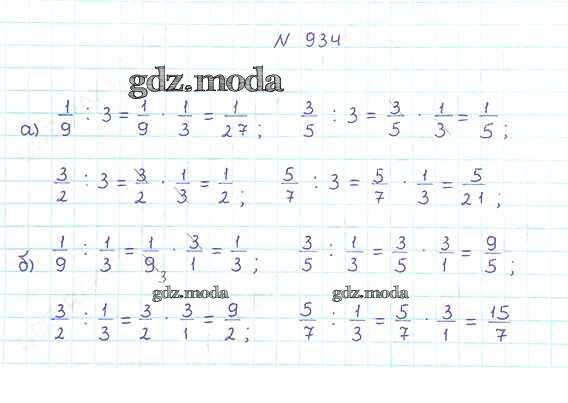 N 934
gdz.moda
а) 1/9 : 3 = 1/9 · 1/3 = 1/27 ; 3/5 : 3 = 3/5 · 1/3 = 1/5 ;
3/2 : 3 = 3/2 · 1/3 = 1/2 ; 5/7 : 3 = 5/7 · 1/3 = 5/21 ;
б) 1/9 : 1/3 = 1/9 3 · 3/1 = 1/3 ; 3/5 : 1/3 = 3/5 · 3/1 = 9/5 ;
gdz.moda gdz.moda
3/2 : 1/3 = 3/2 · 3/1 = 9/2 ; 5/7 : 1/3 = 5/7 · 3/1 = 15/7